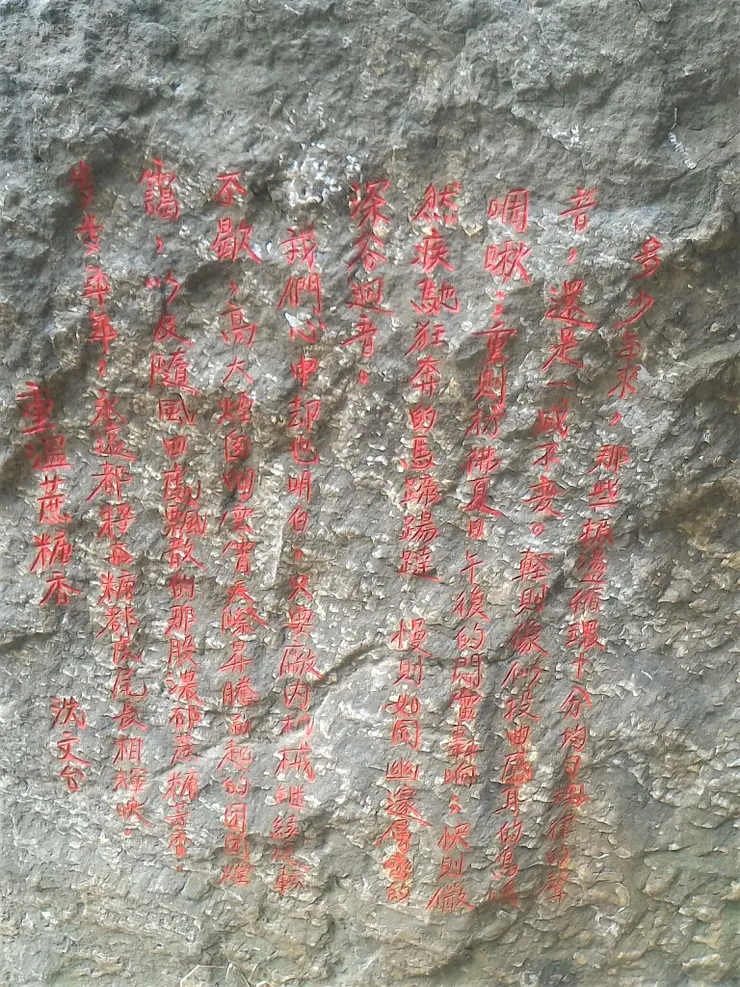 多少年來，那些振盪循環十分均勻規律的聲
音，還是一成不變。輕則像似拔曲長耳的鳥鳴
啁啾；重則彷彿夏日午後的悶雷轟響；快則儼
然疾馳狂奔的馬蹄蹋躂 慢則如同幽邃的
深谷迴音。
我們心中却也明白，只要廠內机械繼續運轉
不歇，高大煙囪煙霄昇騰而起的团团煙
靄，以及隨風四處飄散的那股濃郁蔗糖芳香，
歲歲年年，永遠都將和糖都虎尾長相輝映。
重溫蔗糖香
沈文台